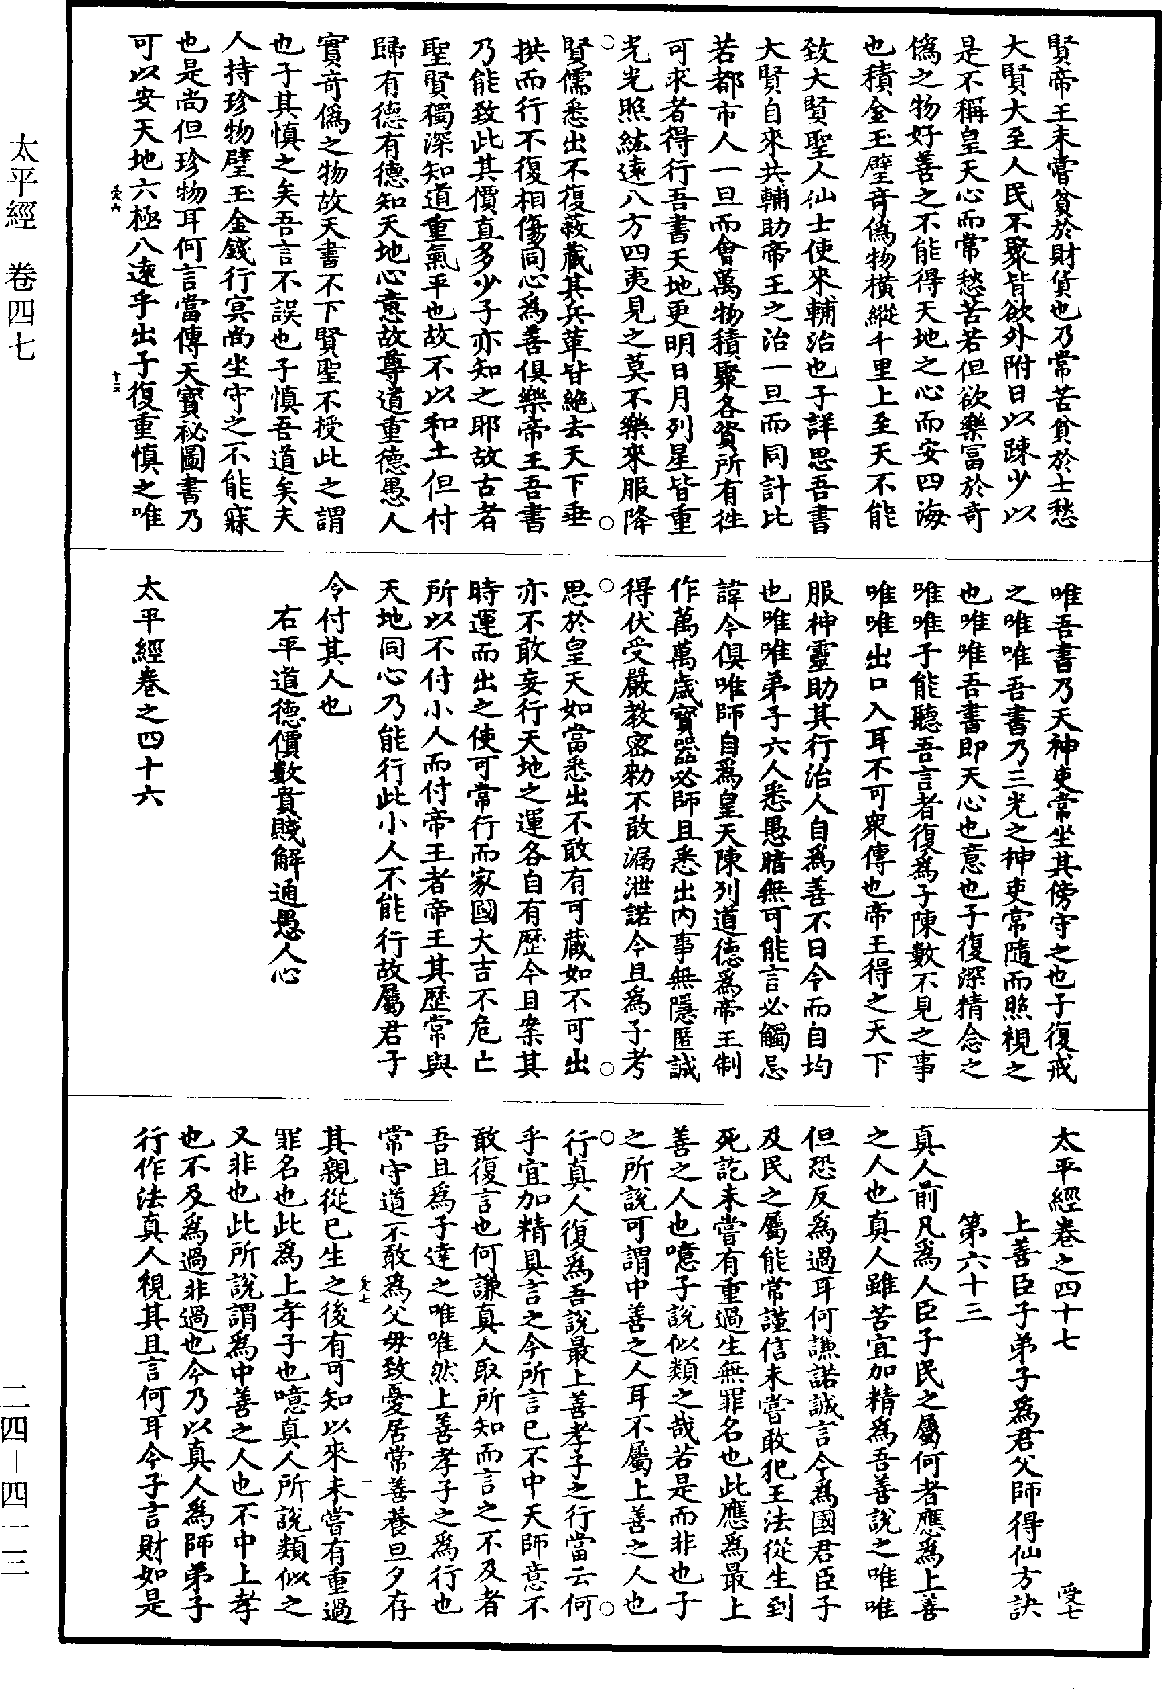 賢帝王未嘗貧於財貨也乃常苦貧於士愁
大賢大至人民不聚皆欲外附日以疎少以
是不稱皇天心而常愁苦若但欲樂富於奇
偽之物好善之不能得天地之心而安四海
也積金玉璧奇偽物橫縱千里上至天不能
致大賢聖人仙士使來輔治也子詳思吾書
大賢自來共輔助帝王之治一旦而同計比
若都市人一旦而會萬物積聚各資所有往
可求者得行吾書天地更明日月列星皆重
光光照紘遠八方四夷見之莫不樂來服降
賢儒悉出不復蔽藏其兵革皆絶去天下垂
拱而行不復相傷同心為善俱樂帝王吾書
乃能致此其價直多少子亦知之耶故古者
聖賢獨深知道重氣平也故不以和土但付
歸有德有德知天地心意故尊道重德愚人
實奇偽之物故天書不下賢聖不授此之謂
也子其慎之矣吾言不誤也子慎吾道矣夫
人持珍物璧玉金錢行冥尚坐守之不能寐
也是尚但珍物耳何言當傳天寶祕圖書乃
可以安天地六極八遠乎出子復重慎之唯
受六
十三
唯吾書乃天神吏常坐其傍守之也子復戒
之唯唯吾書乃三光之神吏常隨而照視之
也唯唯吾書即天心也意也子復深精念之
唯唯子能聽吾言者復為子陳數不見之事
唯唯出口入耳不可衆傳也帝王得之天下
服神靈助其行治人自為善不日令而自均
也唯唯弟子六人悉愚暗無可能言必觸忌
諱今俱唯師自為皇天陳列道德為帝王制
作萬萬歲寶器必師且悉出內事無隱匿誠
得伏受嚴教密勑不敢漏泄諾今且為子考
思於皇天如當悉出不敢有可藏如不可出
亦不敢妄行天地之運各自有歷今且案其
時運而出之使可常行而家國大吉不危亡
所以不付小人而付帝王者帝王其歷常與
天地同心乃能行此小人不能行故屬君子
令付其人也
右平道德價數貴賤解通愚人心
太平經卷之四十六
太平經卷之四十七
受七
上善臣子弟子為君父師得仙方訣
第六十三
真人前凡為人臣子民之屬何者應為上善
之人也真人雖苦宜加精為吾善說之唯唯
但恐反為過耳何謙諾誠言今為國君臣子
及民之屬能常謹信未嘗敢犯王法從生到
死訖未嘗有重過生無罪名也此應為最上
善之人也噫子說似類之哉若是而非也子
之所說可謂中善之人耳不屬上善之人也
行真人復為吾說最上善孝子之行當云何
乎宜加精具言之今所言已不中天師意不
敢復言也何謙真人取所知而言之不及者
吾且為子達之唯唯然上善孝子之為行也
常守道不敢為父母致憂居常善養旦夕存
受七
一
其親從已生之後有可知以來未嘗有重過
罪名也此為上孝子也噫真人所說類似之
又非也此所說謂為中善之人也不中上孝
也不及為過非過也今乃以真人為師弟子
行作法真人視其且言何耳今子言財如是
太平經 卷四七
二四—四一三